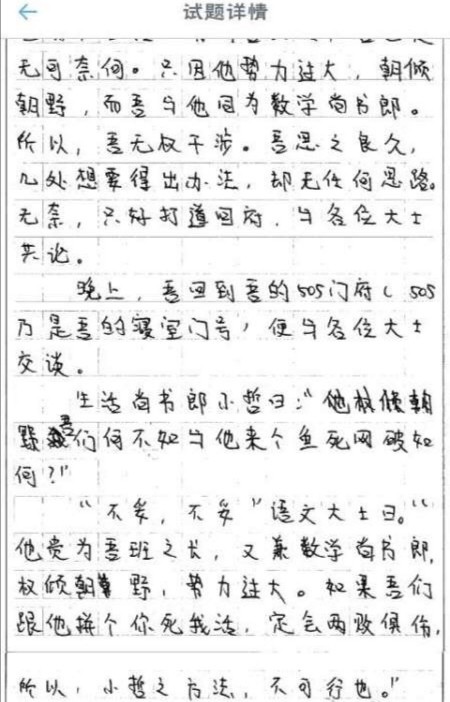 试题详情
无可奈何。只因他势力过大，朝倾
朝野，而吾与他同为数学尚书郎。
所以，吾无权干涉。吾思之良久，
几处想要得出办法，却无任何思路。
无奈，只好打道回府，与各位大士
共论。
晚上，吾回到吾的505门府（505
乃是吾的寝室门号，便与各位大士
交谈。
生活尚书郎小哲曰：“他权倾朝
野，吾们何不如与他来个鱼死网破如
何？”
“不妥，不妥”语文大士曰。“
他贵为吾班之长，又兼数学尚书郎，
权倾朝野，势力过大。如果吾们
跟他拼个你死我活，定会两败俱伤，
所以，小哲之方法，不可行也。”